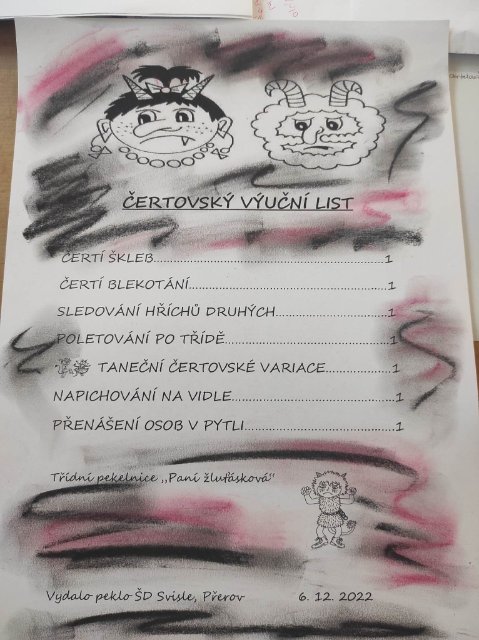 ČERTOVSKÝ VÝUČNÍ LIST
ČERTÍ ŠKLEB.................................................1
ČERTÍ BLEKOTÁNÍ..........................................1
SLEDOVÁNÍ HŘÍCHŮ DRUHÝCH.........................1
POLETOVÁNÍ PO TŘÍDĚ...................................1
TANEČNÍ ČERTOVSKÉ VARIACE................1
NAPICHOVÁNÍ NA VIDLE..................................1
PŘENÁŠENÍ OSOB V PYTLI...............................1
Třídní pekelnice ,,Paní žluťásková"
Vydalo peklo ŠD Svisle, Přerov 6. 12. 2022